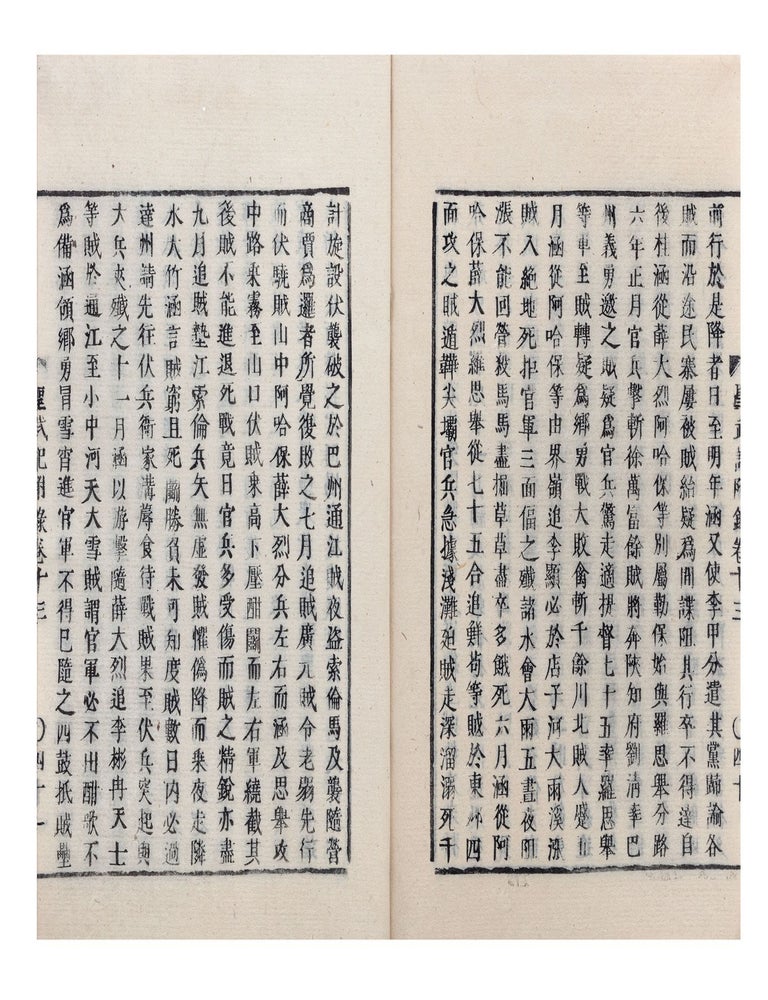 前行於是降者日至明年涵又使李甲分遣其黨歸諭谷
賊而沿途民寨屢被賊紿疑爲間諜阻其行卒不得達自
後桂涵從薛大烈阿哈保等別屬勒保始與羅思舉分路
六年正月官兵擊斬徐萬富餘賊將奔陝知府劉淸牽巴
州義勇邀之賊疑爲官兵驚走適拐督七十五牽羅思舉
等車至賊轉疑爲鄉勇戰大敗禽斬千餘川北賊人蹙
月涵從阿哈保等由界嶺追李顯必於店子河大雨溪漲
賊入絕地死拒官軍三面偪之殲諸水會大雨五晝夜阻
漲不能回營殺馬馬盡掘草草盡卒多餓死六月涵從阿
哈保薛大烈羅思舉從七十五合追鮮茍等賊於東鄉四
面攻之賊遁韡尖壩官兵急據淺灘廹賊走深溜溺死千
聖武記附錄卷十三
四十
計旋設伏襲破之於巴州通江賊夜盜索倫馬及襲隨營
商賈爲邏者所覺復敗之七月追賊廣元賊令老弱先行
而伏驍賊山中阿哈保薛大烈分兵左右而涵及思舉攻
中路乘霧至山口伏賊乘高下壓酣鬬而左右軍繞截其
後賊不能進退死戰竟日官兵多受傷而賊之精銳亦盡
九月追賊墊江索倫兵矢無虛發賊懼僞降而乘夜走隣
水大竹涵言賊窮且死鬬勝負未可知度賊數日內必過
達州請先往伏兵衛家溝蓐食待戰賊果至伏兵突起與
大兵夾殲之十一月涵以游擊隨薛大烈追李彬冉天士
等賊於通江至小中河天大雪賊謂官軍必不出酣歌不
爲備涵領鄉勇冒雪宵進官軍不得巳隨之四鼓抵賊壘
聖武記附錄卷十三
四十一